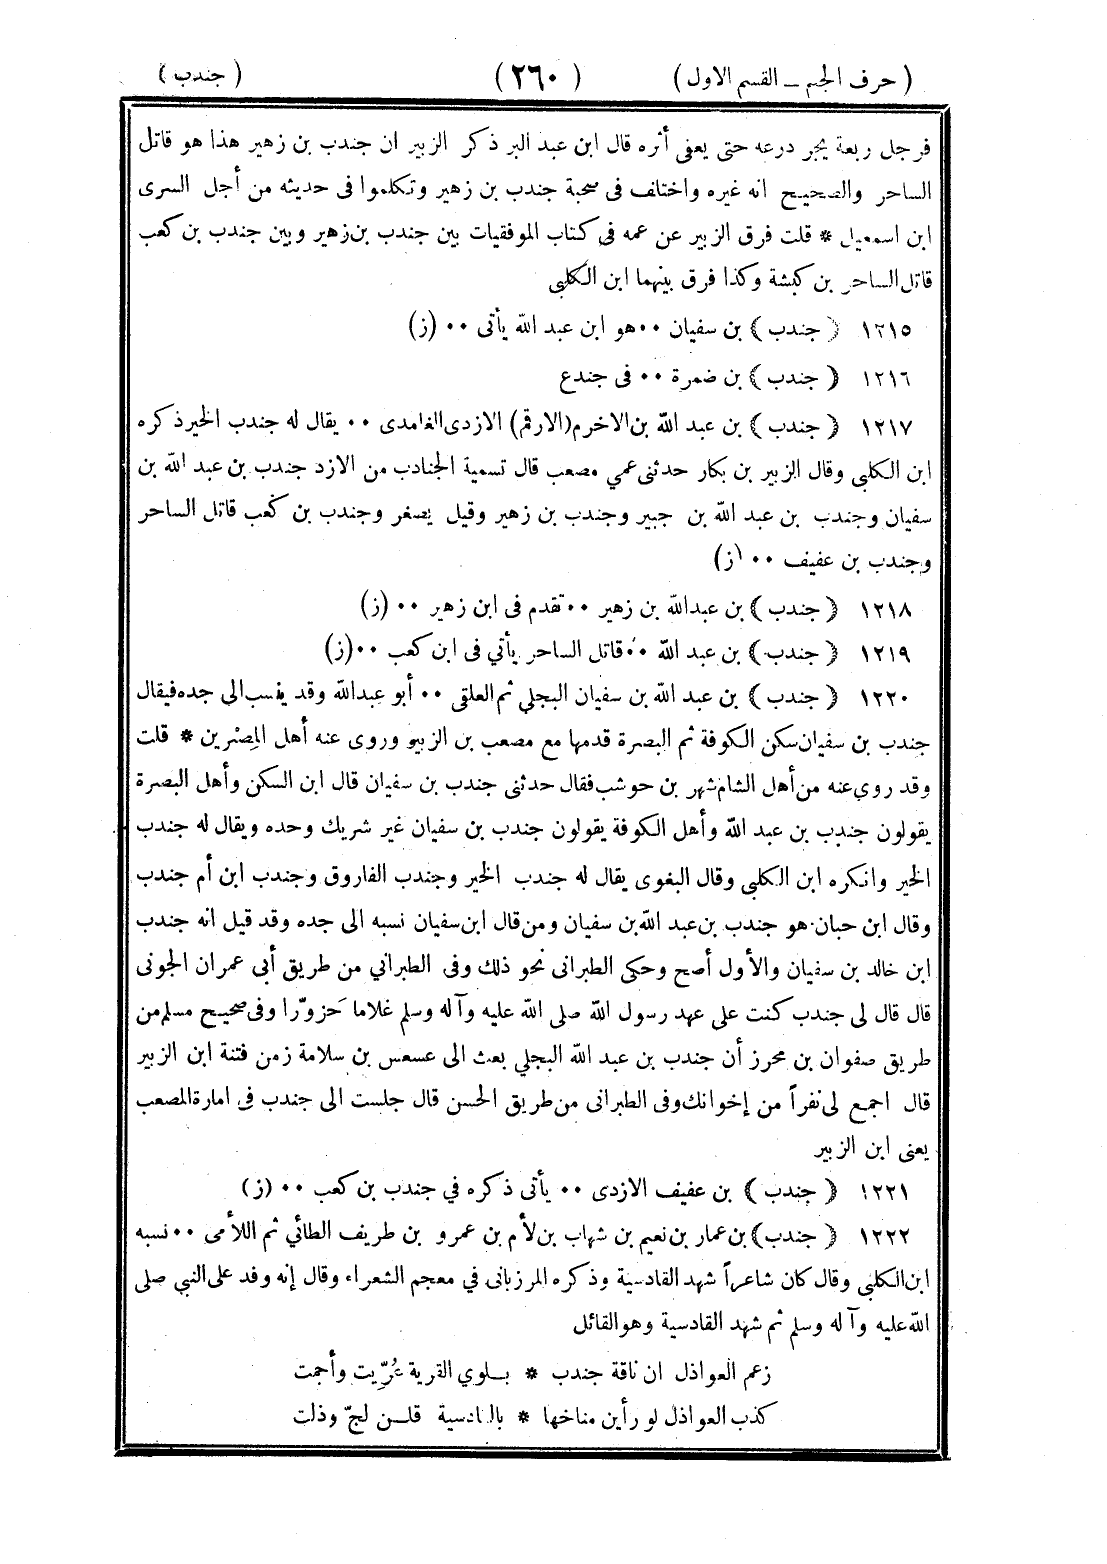 ( حرف الجيم ــ القسم الاول ) ( ٢٦٠ ) ( جندب )
فرجل ربعة يجر درعه حتى يعفى أثره قال ابن عبد البر ذكر الزبير ان جندب بن زهير هذا هو قاتل
الساحر والصحيح انه غيره واختلف فى صحبة جندب بن زهير وتكلموا فى حديثه من أجل السرى
ابن اسمعيل * قلت فرق الزبير عن عمه فى كتاب الموفقيات بين جندب بن زهير وبين جندب بن كعب
قاتل الساحر بن كبشة وكذا فرق بينهما ابن الكلبى
١٢١٥ ( جندب ) بن سفيان ٠٠ هو ابن عبد الله يأتى ٠٠ (ز)
١٢١٦ ( جندب ) بن ضمرة ٠٠ فى جندع
١٢١٧ ( جندب ) بن عبد الله بن الاخرم (الارقم) الازدى الغامدى ٠٠ يقال له جندب الخير ذكره
ابن الكلبي وقال الزبير بن بكار حدثنى عمي مصعب قال تسمية الجنادب من الازد جندب بن عبد الله بن
سفيان وجندب بن عبد الله بن جبير وجندب بن زهير وقيل يصغر وجندب بن كعب قاتل الساحر
وجندب بن عفيف ٠٠ (ز)
١٢١٨ ( جندب ) بن عبدالله بن زهير ٠٠ تقدم فى ابن زهير ٠٠ (ز)
١٢١٩ ( جندب ) بن عبد الله ٠٠ قاتل الساحر يأتي فى ابن كعب ٠٠ (ز)
١٢٢٠ ( جندب ) بن عبد الله بن سفيان البجلي ثم العلقى ٠٠ أبو عبدالله وقد ينسب الى جده فيقال
جندب بن سفيان سكن الكوفة ثم البصرة قدمها مع مصعب بن الزبير وروى عنه أهل المصرين * قلت
وقد روي عنه من أهل الشام شهر بن حوشب فقال حدثنى جندب بن سفيان قال ابن السكن وأهل البصرة
يقولون جندب بن عبد الله وأهل الكوفة يقولون جندب بن سفيان غير شريك وحده ويقال له جندب
الخير وانكره ابن الكلبي وقال البغوى يقال له جندب الخير وجندب الفاروق وجندب ابن أم جندب
وقال ابن حبان هو جندب بن عبد الله بن سفيان ومن قال ابن سفيان نسبه الى جده وقد قيل انه جندب
ابن خالد بن سفيان والأول أصح وحكى الطبرانى نحو ذلك وفى الطبراني من طريق أبى عمران الجونى
قال قال لى جندب كنت على عهد رسول الله صلى الله عليه وآله وسلم غلاما حَزوّرا وفى صحيح مسلم من
طريق صفوان بن محرز أن جندب بن عبد الله البجلي بعث الى عسعس بن سلامة زمن فتنة ابن الزبير
قال اجمع لى نفراً من إخوانك وفى الطبرانى من طريق الحسن قال جلست الى جندب فى امارة المصعب
يعنى ابن الزبير
١٢٢١ ( جندب ) بن عفيف الازدى ٠٠ يأتى ذكره في جندب بن كعب ٠٠ (ز)
١٢٢٢ ( جندب ) بن عمار بن نعيم بن شهاب بن لأم بن عمرو بن طريف الطائي ثم اللأمى ٠٠ نسبه
ابن الكلبي وقال كان شاعراً شهد القادسية وذكره المرزبانى في معجم الشعراء وقال إنه وفد على النبي صلى
الله عليه وآله وسلم ثم شهد القادسية وهو القائل
زعم العواذل ان ناقة جندب * بلوي القرية عُرِّيت وأجمت
كذب العواذل لو رأين مناخها * بالقادسية قلن لجّ وذلت